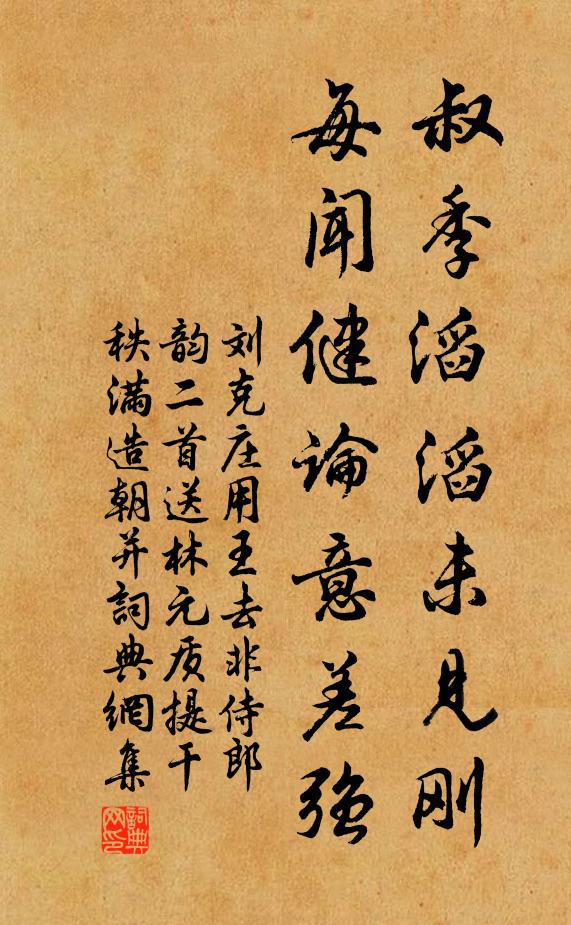 叔季滔滔未见刚
每闻健論意差强
刘克庄用王去非侍郎
韵二首送林元质提干
秩满造朝并詞典網集
詞典网印